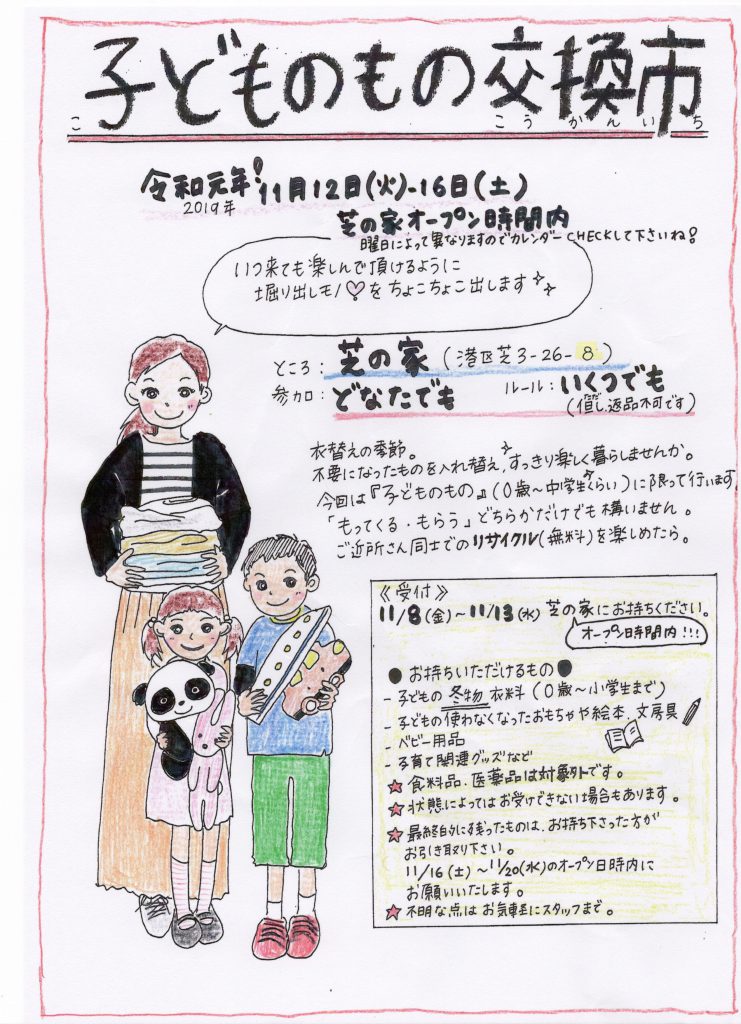 子どものもの交換市
こ こうかんいち
令和元年! 11月12日(火)-16日(土)
2019年
芝の家オープン時間内
曜日によって異なりますのでカレンダーCHECKして下さいね!
いつ来ても楽しんで頂けるように
堀り出しモノ♡をちょこちょこ出します
ところ: 芝の家(港区芝3-26-8)
参加: どなたでも ルール: いくつでも
(但し、返品不可です)
ただ
衣替えの季節。
不要になったものを入れ替え、すっきり楽しく暮らしませんか。
今回は『子どものもの』(0歳〜中学生くらい)に限って行います
「もってくる・もらう」どちらかだけでも構いません。
ご近所さん同士でのリサイクル(無料)を楽しめたら。
《受付》
11/8(金)〜11/13(水) 芝の家にお持ちください。
オープン日時間内!!!
●お持ちいただけるもの●
- 子どもの冬物衣料(0歳〜小学生まで)
- 子どもの使わなくなったおもちゃや絵本、文房具
- ベビー用品
- 子育て関連グッズなど
★食料品・医薬品は対象外です。
★状態によってはお受けできない場合もあります。
★最終的に残ったものは、お持ち下さった方が
お引き取り下さい。
11/16(土)〜11/20(水)のオープン日時内に
お願いいたします。
★不明な点はお気軽にスタッフまで。